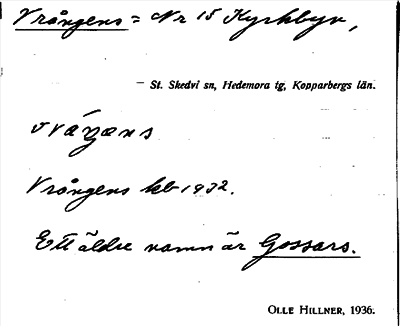 Vrångens = Nr 15 Kyrkbyn,
— St. Skedvi sn, Hedemora tg, Kopparbergs län.
vráŋəns
Vrångens kb 1932.
Ett äldre namn är Gossars.
OLLE HILLNER, 1936.